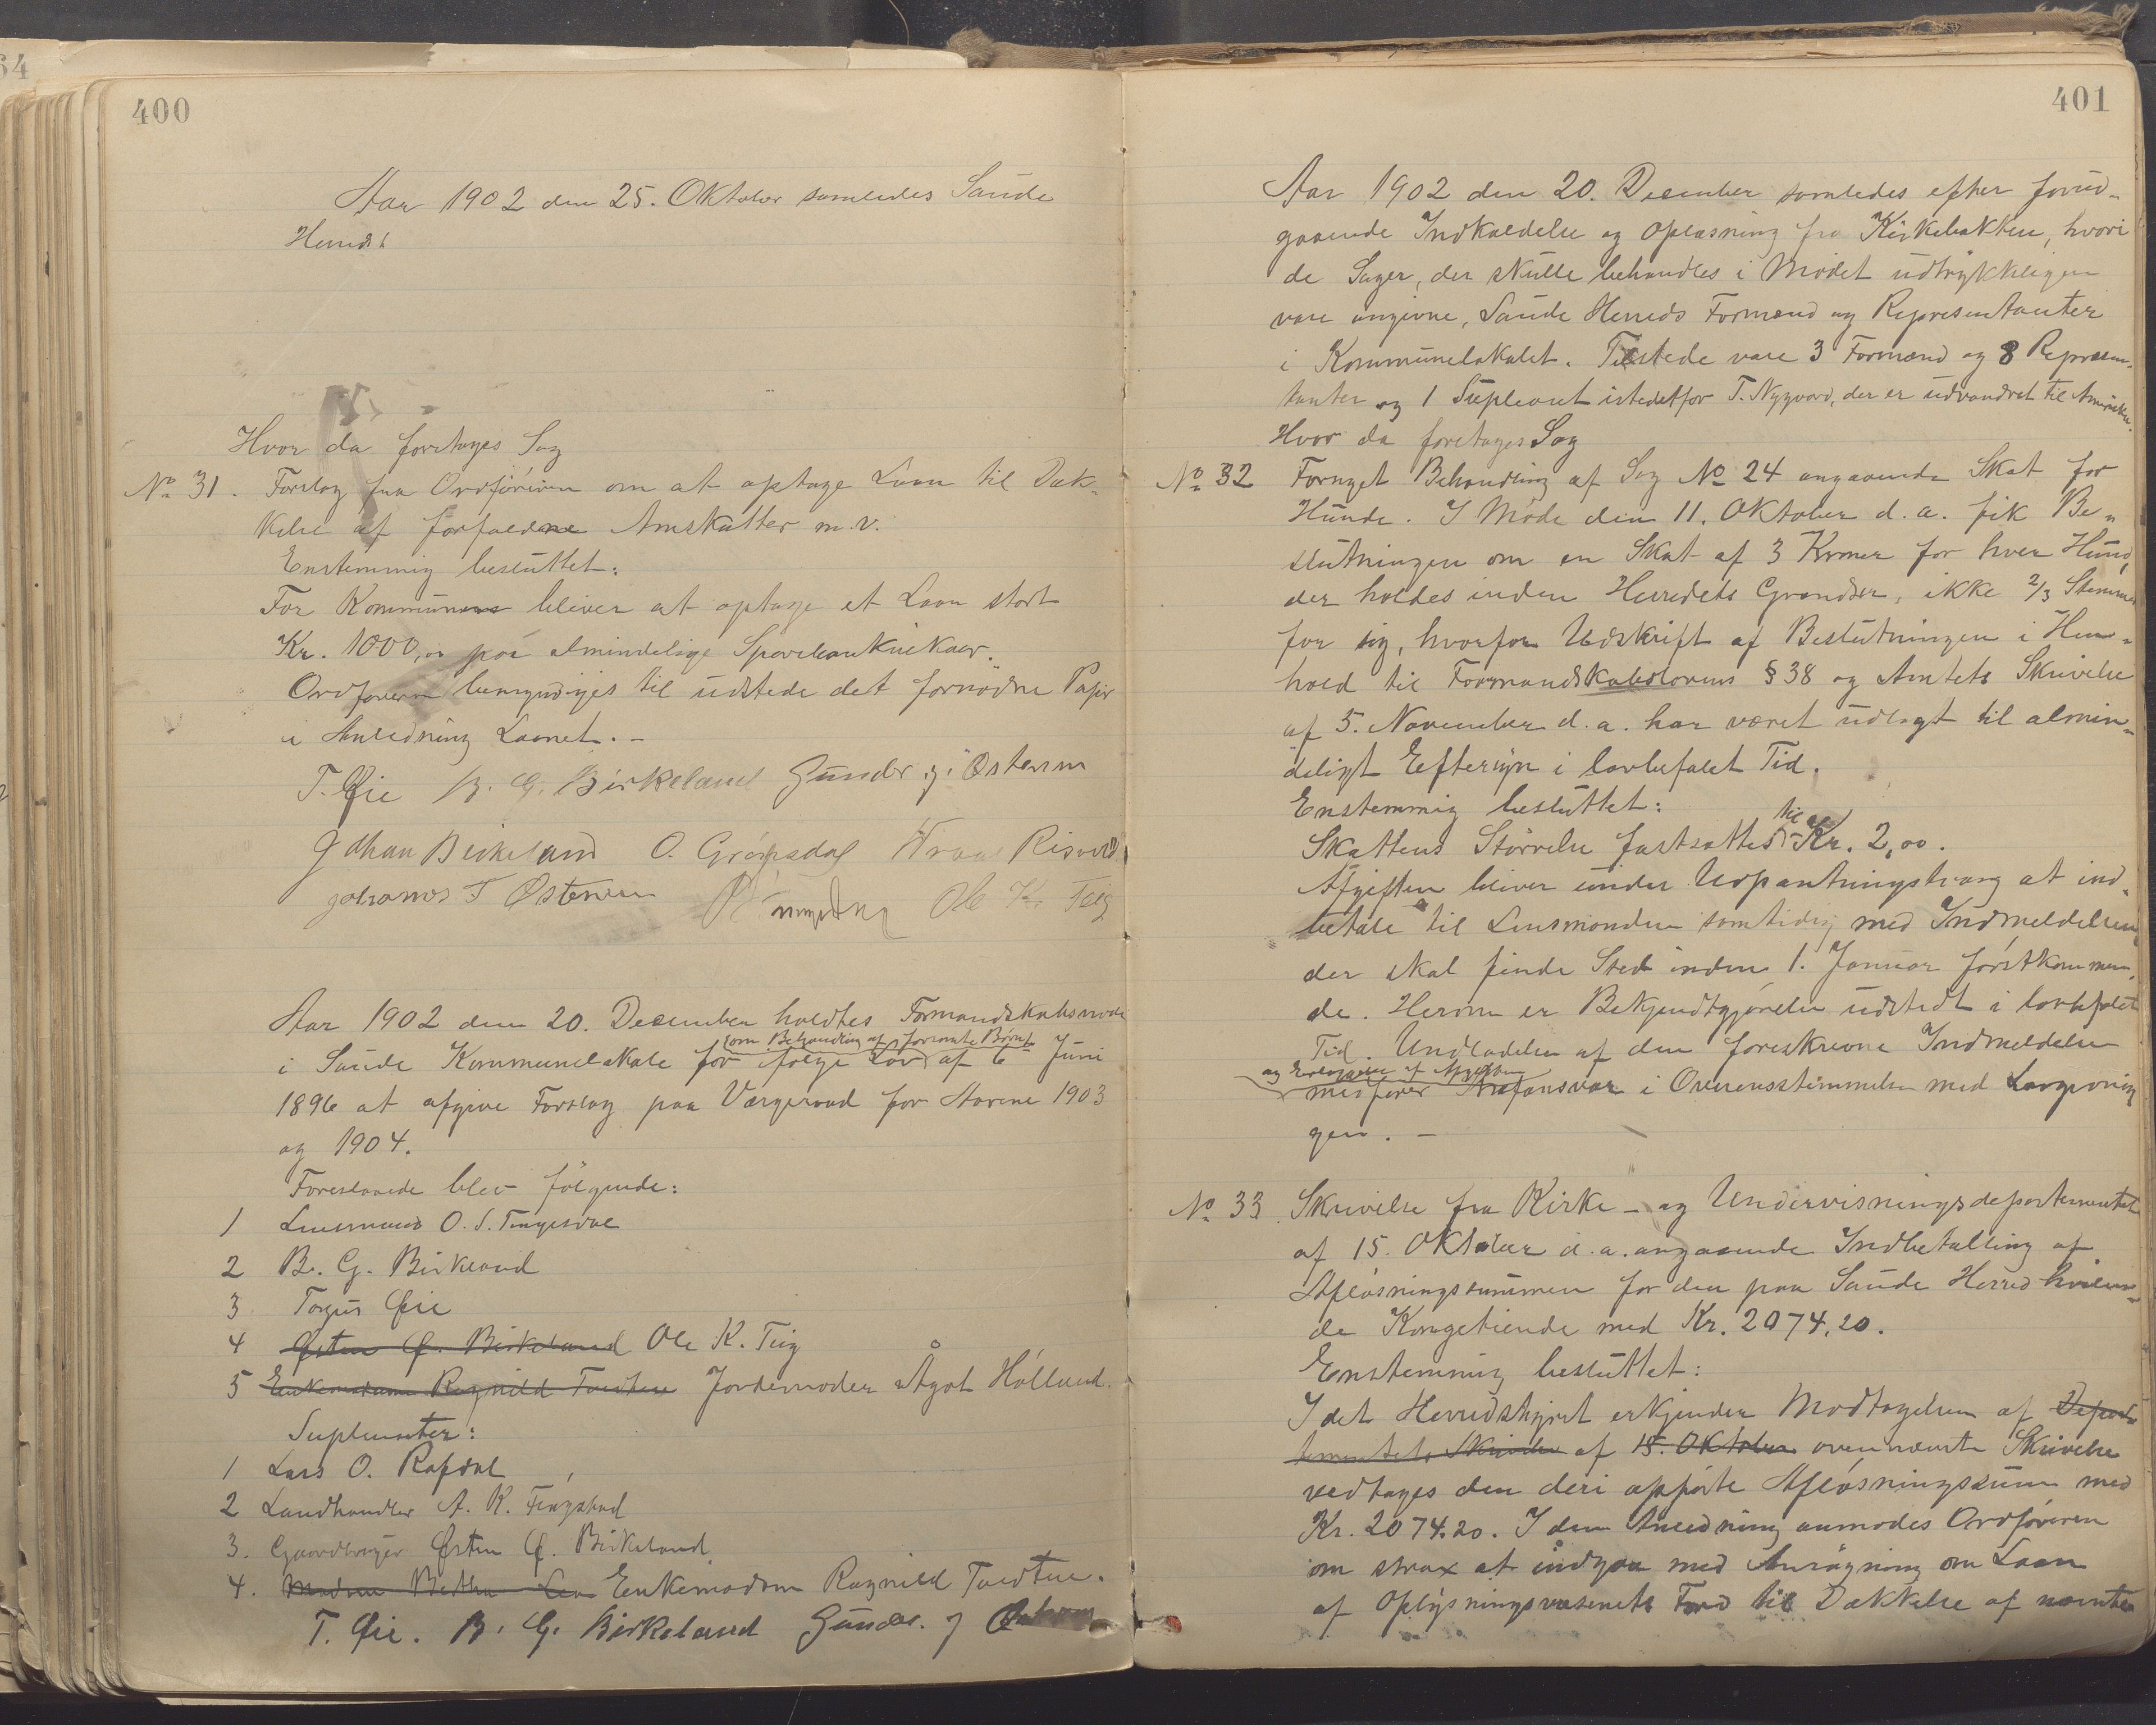 400
Aar 1902 den 25. Oktober samledes Saude
Herreds
Hvor da foretages Sag
No 31. Forslag fra Ordføreren om at optage Laan til Dæk-
kelse af forfaldne Amskatter m.v.
Enstemmig besluttet:
For Kommunens bliver at optage et Laan stort
Kr. 1000,00 paa almindelige Sparebankvilkaar.
Ordføreren bemyndiges til udstede det fornødne Papir
i Anledning Laanet. -
T. Øie B. G. Birkeland Gunder G. Østensen
Johan Birkeland O. Gröpsdal Risvold
Johannes T Østensen Ole K. Teig
Aar 1902 den 20. December holdtes Formandskabsmøde
om Behandling af forsømte Børn
i Saude Kommunelokale for følge Lov af 6 Juni
1896 at afgive Forslag paa Værgeraad for Aarene 1903
og 1904.
Foreslaaede blev følgende:
1 Lensmand O. S. Tengesdal
2 B. G. Birkeland
3 Torgius Øie
4 Østen Ø. Birkeland Ole K. Teig
5 Enkemadam Ragnild Tvedten Jordemoder Ågot Hølland.
Suplenter:
1 Lars O. Rafdal
2 Landhandler A. K. Fengstad
3. Gaardbruger Østen Ø. Birkeland
4. Madam Bertha Lea Enkemadam Ragnild Tvedten.
T. Øie. B. G. Birkeland Gunder. G
401
Aar 1902 den 20. December samledes efter forud-
gaaende Indkaldelse og Oplæsning fra Kirkebakken, hvori
de Sager, der skulle behandles i Mødet udtrykkeligen
vare angivne, Saude Herreds Formænd og Repræsentanter
i Kommunelokalet. Tilstede vare 3 Formænd og 8 Repræsen-
tanter og 1 Supleant istedetfor T. Nygaard, der er udvandret til Amerika.
Hvor da foretages Sag
No 32 Fornyet Behandling af Sag No 24 angaaende Skat for
Hunde. I Møde den 11. Oktober d.a. fik Be-
slutningen om en Skat af 3 Kroner for hver Hund,
der holdes inden Herredets Grændser, ikke 2/3 Stemmer
for sig, hvorfor Udskrift af Beslutningen i Hen-
hold til Formandskabslovens § 38 og Amtets Skrivelse
af 5. November d.a. har været udlagt til almin-
deligt Eftersyn i lovbefalet Tid.
Enstemmig besluttet:
til
Skattens Størrelse fastsattes Kr. 2,00.
Afgiften bliver under Udpantningstvang at ind-
betale til Lensmanden samtidig med Indmeldelsen,
der skal finde Sted inden 1. Januar førstkommen-
de. Herom er Bekjendtgjørelse udstedt i lovbefalet
Tid. Undladelse af den foreskrevne Indmeldelse
og Erlæggelse af Afgiften
medfører Strafansvar i Overensstemmelse med Lovgivnin
gen. -
No 33. Skrivelse fra Kirke- og Undervisningsdepartementet
af 15. Oktober d.a. angaaende Indbetalling af
Afløsningssummen for den paa Saude Herred hvilen-
de Kongetiende med Kr. 2074,20.
Enstemmig besluttet:
I det Herredstyret erkjender Modtagelsen af Depar-
tementets Skrivelse af 15. Oktober ovennævnte Skrivelse
vedtages den deri opførte Afløsningssum med
Kr. 2074.20. I den Anledning anmodes Ordføreren
om strax at indgaa med Ansøgning om Laan
af Oplysningsvæsenets Fond til Dækkelse af nævnte